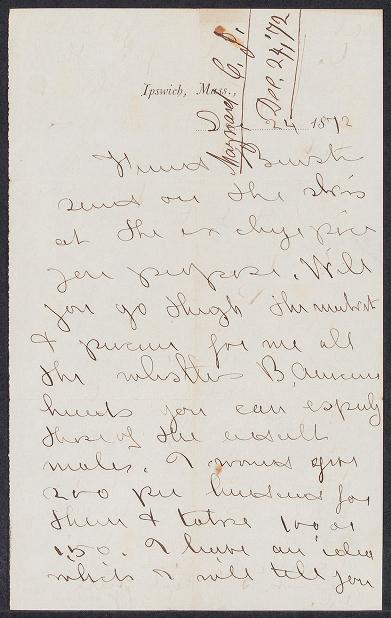 Maynard, C. J.
Dec. 24, '72
Ipswich, Mass.,
D 24 1872
Friend Brewster
send on the skins
at the exchange price
you propose. Will
you go through the market
& procure for me all
the whistlers B. Americana
heads you can especially
those of the adult
males. I would give
200 per hundred for
them & take 100 or
150. I have an idea
which I will tell you